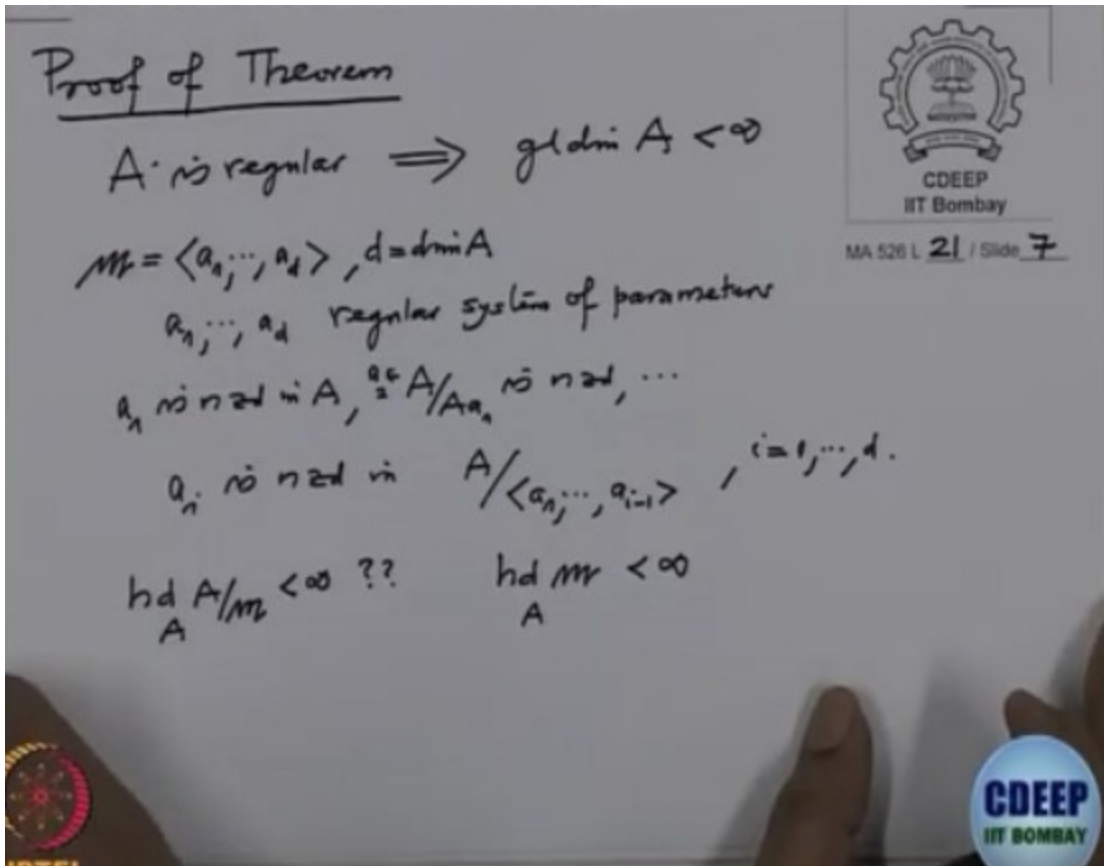 Proof of Theorem
A is regular ⟹ gldim A < ∞
CDEEP
IIT Bombay
MA 526 L 21 / Slide 7
𝔪 = ⟨a₁, ⋯, a_d⟩, d = dim A
a₁, ⋯, a_d regular system of parameters
a₁ is nzd in A, a₂ ∈ A/Aa₁ is nzd, ⋯
a_i is nzd in A/⟨a₁, ⋯, a_{i-1}⟩, i = 1, ⋯, d.
hd_A A/𝔪 < ∞ ?? hd_A 𝔪 < ∞
CDEEP
IIT BOMBAY